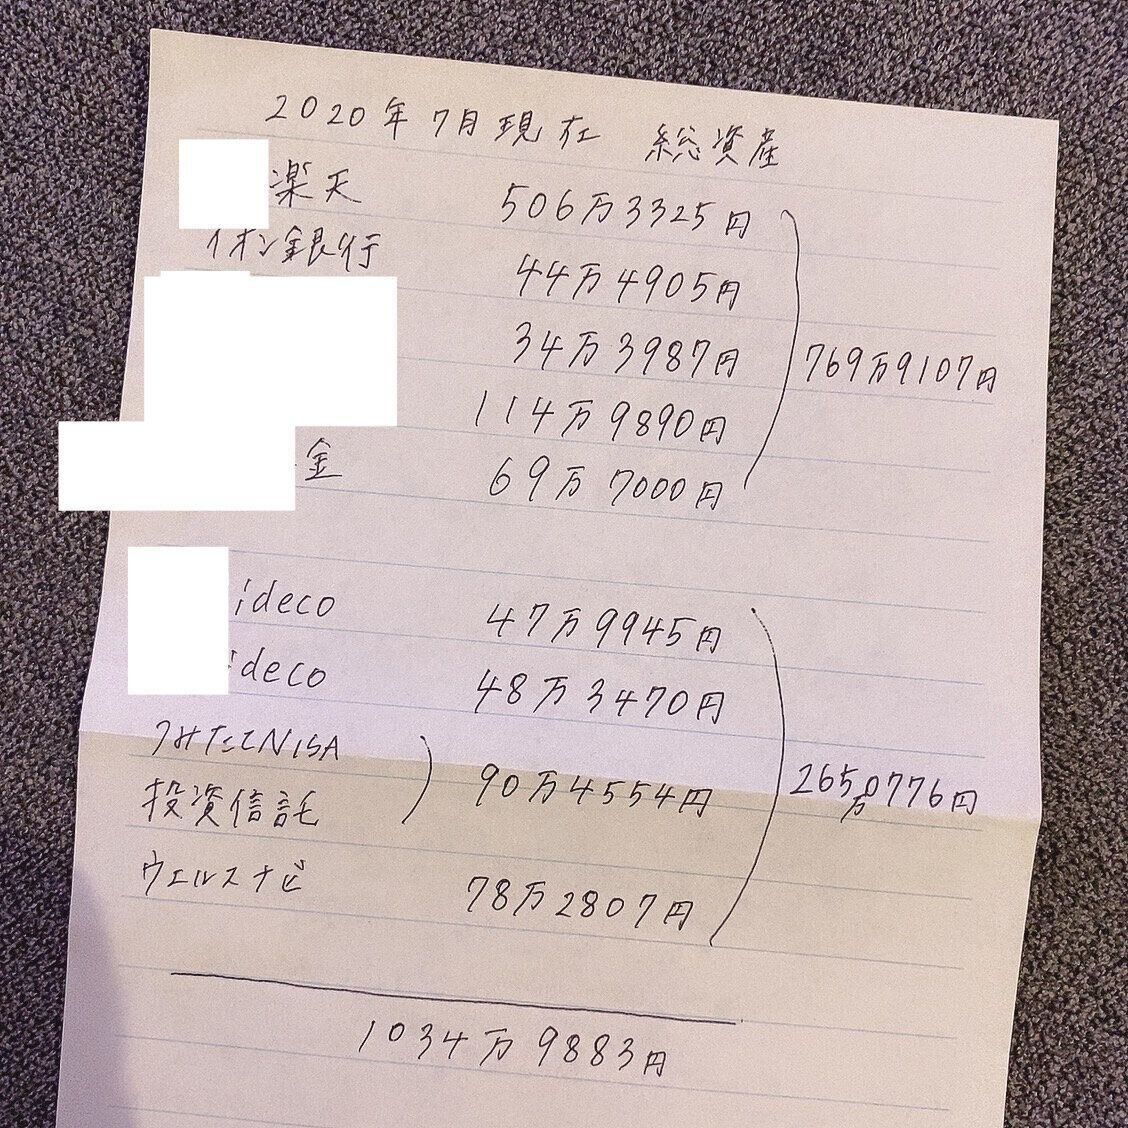 2020年7月現在 総資産
楽天 506万3325円
イオン銀行 44万4905円
34万3987円
769万9107円
114万9890円
金 69万7000円
ideco 47万9945円
ideco 48万3470円
つみたてNISA
投資信託
90万4554円
265万0776円
ウェルスナビ 78万2807円
1034万9883円